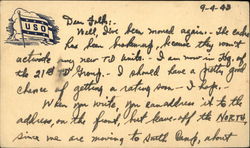 9-4-43
USO
Dear Folks:-
Well, I've been moved again. The cadre
has been broken up, because they won't
activate any new TD units. I am now in Hq. of
the 21st TD Group. I should have a pretty good
chance of getting a rating soon - I hope.
When you write, you can address it to the
address, on the front, but leave off the NORTH,
since we are moving to South Camp, about